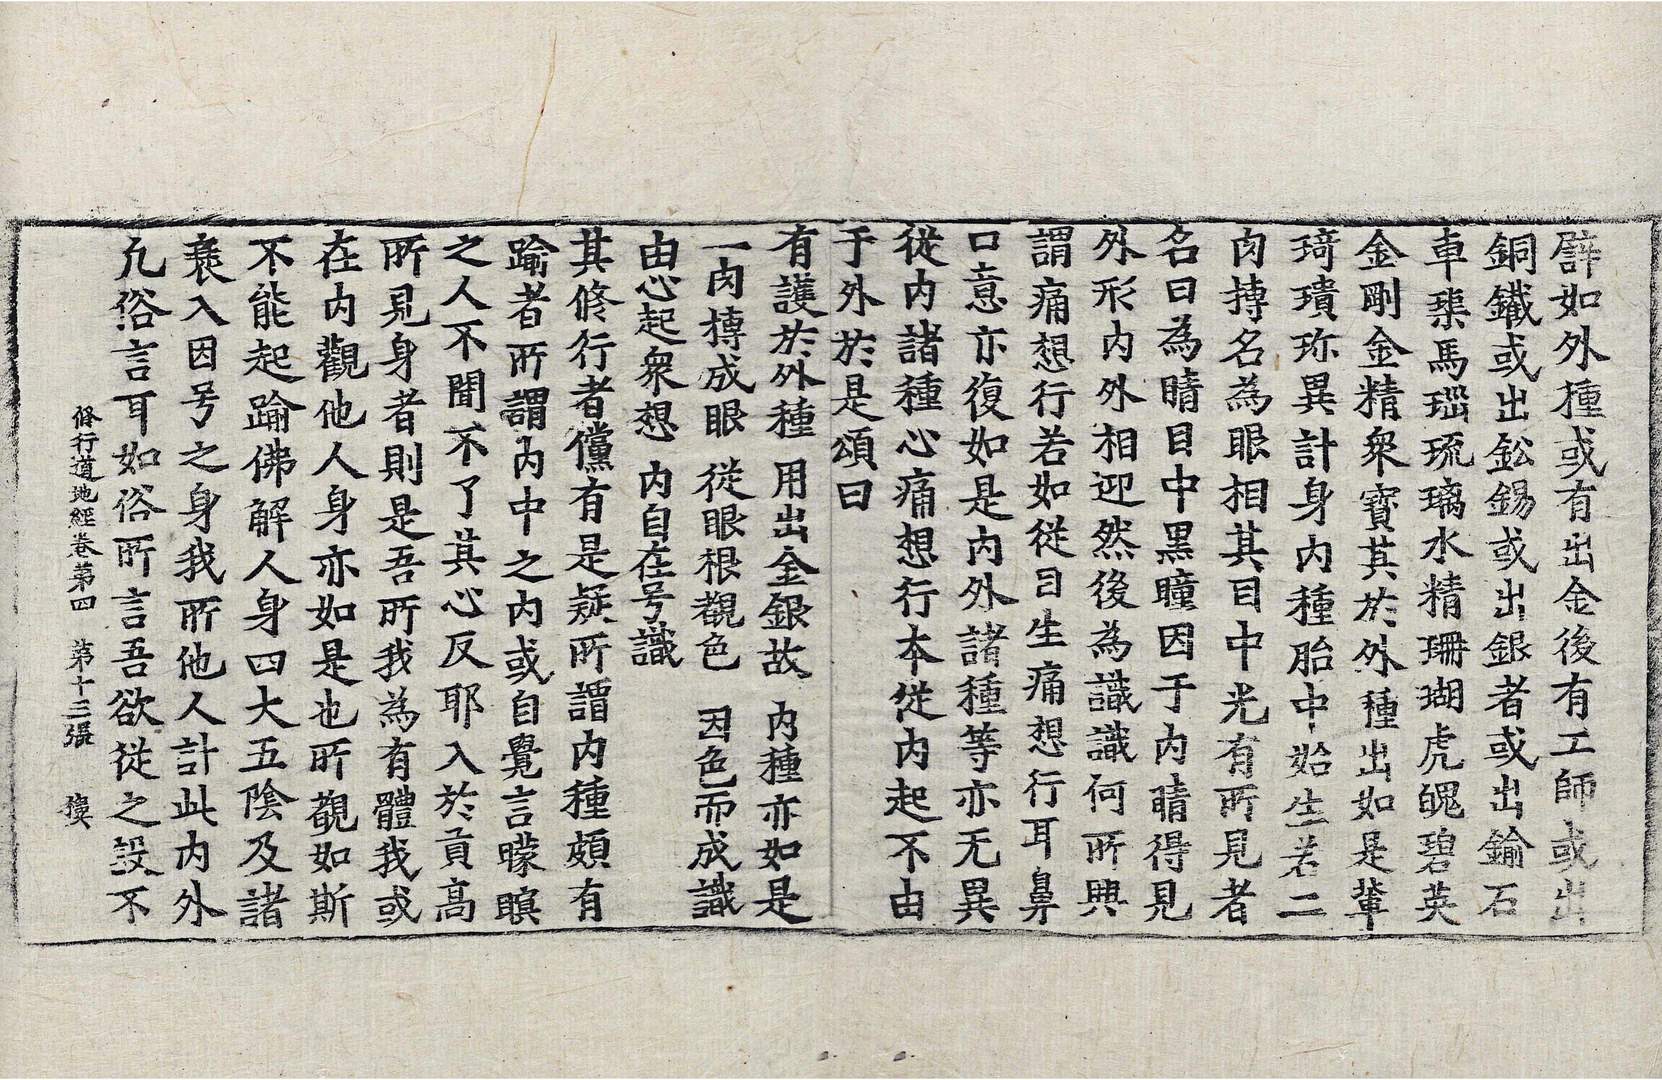 譬如外種或有出金後有工師或出
銅鐵或出鈆錫或出銀者或出鍮石
車𤦲馬瑙琉璃水精珊瑚虎魄碧英
金剛金精衆寶其於外種出如是輩
琦璝珎異計身內種胎中始生若二
肉摶名為眼相其目中光有所見者
名曰為睛目中黑瞳因于內睛得見
外形內外相迎然後為識識何所興
謂痛想行若如從目生痛想行耳鼻
口意亦復如是內外諸種等亦无異
從內諸種心痛想行本從內起不由
于外於是頌曰
有護於外種 用出金銀故 內種亦如是
一肉摶成眼 從眼根觀色 因色而成識
由心起衆想 內自在号識
其修行者儻有是疑所謂內種頗有
踰者所謂內中之內或自覺言曚瞑
之人不聞不了其心反耶入於貢高
所見身者則是吾所我為有體我或
在內觀他人身亦如是也所觀如斯
不能起踰佛解人身四大五陰及諸
衰入因号之身我所他人計此內外
凢俗言耳如俗所言吾欲從之設不
修行道地經卷第四 第十三張